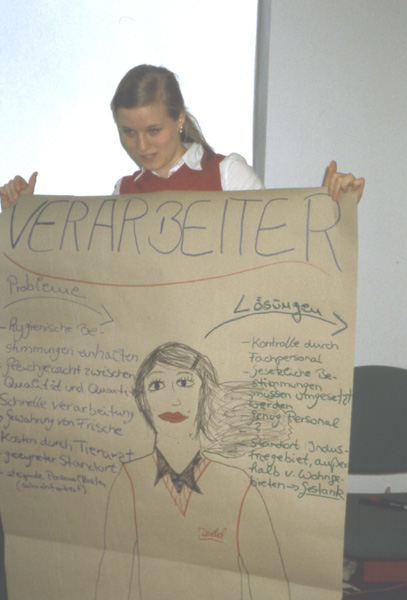 VERARBEITER
Probleme
- Hygienische Be-
stimmungen einhalten
- Gleichgewicht zwischen
Qualität und Quantität
Schnelle Verarbeitung
Gewährung von Frische
Kosten durch Tierarzt
geeigneter Standort
Lösungen
- Kontrolle durch
Fachpersonal
- gesetzliche Be-
stimmungen
müssen umgesetzt
werden
- genug Personal
?
- Standort: Indus-
triegebiet, außer-
halb v. Wohnge-
bieten => Gestank